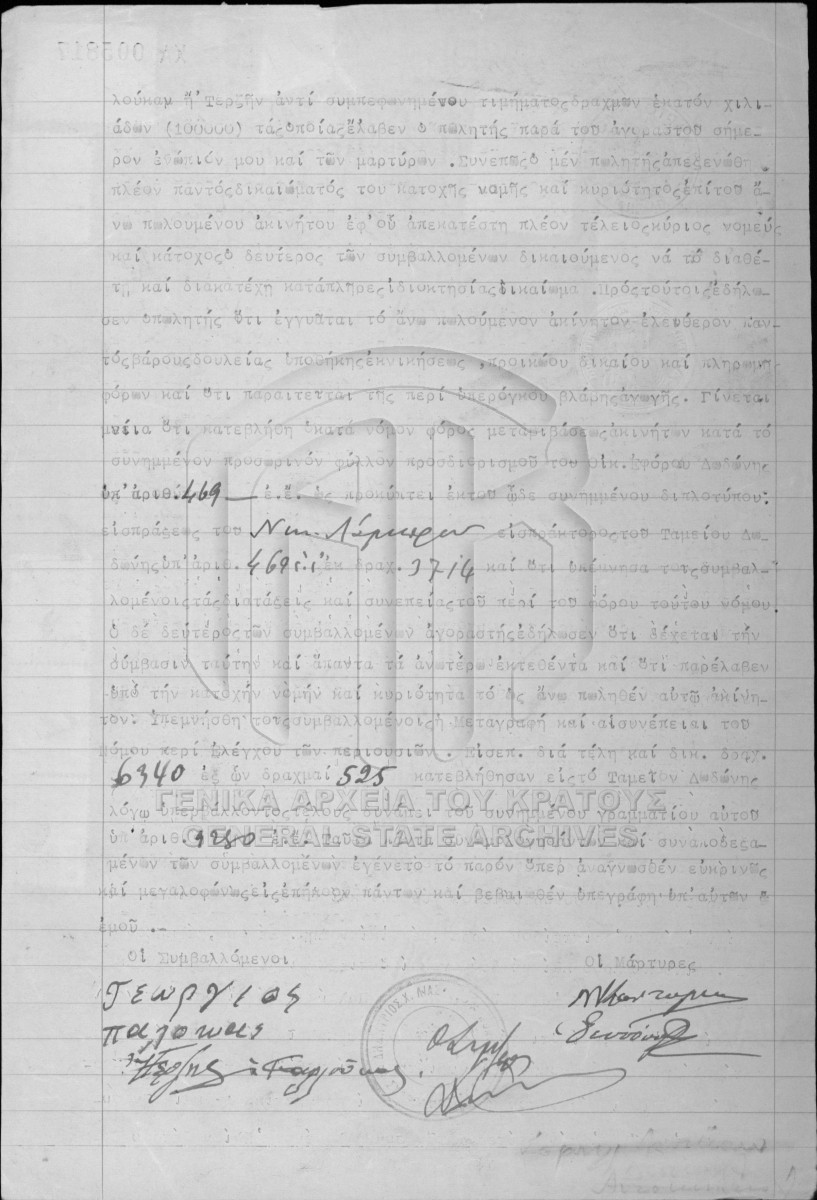 λούκαν ἤ Τερζῆν ἀντί συμπεφωνημένου τιμήματοςδραχμῶν ἑκατόν χιλι-
άδων (100000) τάςὁποίαςἔλαβεν ὁ πωλητής παρά τοῦ ἀγοραστοῦ σήμε-
ρον ἐνώπιόν μου καί τῶν μαρτύρων .Συνεπῶςὁ μέν πωλητήςἀπεξενώθη
πλέον παντόςδικαιώματός του κατοχῆς νομῆς καί κυριότητοςἐπίτοῦ ἄ-
νω πωλουμένου ἀκινήτου ἐφ'οὗ ἀπεκατέστη πλέον τέλειοςκύριος νομεύς
καί κάτοχοςὁ δεύτερος τῶν συμβαλλομένων δικαιούμενος νά τό διαθέ-
τῃ καί διακατέχῃ κατάπλῆρεςἰδιοκτησίαςδικαίωμα .Πρόςτούτοιςἐδήλω-
σεν ὁπωλητής ὅτι ἐγγυᾶται τό ἄνω πωλούμενον ἀκίνητον ἐλεύθερον παν-
τόςβάρουςδουλείας ὑποθήκηςἐκνικήσεως ,προικώου δικαίου καί πληρωμῆ-
φόρων καί ὅτι παραιτεῖται τῆς περί ὑπερόγκου βλάβηςἀγωγῆς. Γίνεται
μνεία ὅτι κατεβλήθη ὁκατά νόμον φόρος μεταβιβάσεωςἀκινήτων κατά τό
συνημμένον προσωρινόν φύλλον προσδιορισμοῦ τοῦ Οἰκ.Ἐφόρου Δωδώνης
ὑπ'ἀριθ.469 — ἐ.ἔ. ὡς προκύπτει ἐκτοῦ ὧδε συνημμένου διπλοτύπου
εἰσπράξεως τοῦ Νικ. εἰσπράκτοροςτοῦ Ταμείου Δω-
δώνηςὑπ'ἀριθ. 469 ἐ.ἔ ἐκ δραχ. 3714 καί ὅτι ὑπέμνησα τοῖςσυμβαλ-
λομένοιςτάςδιατάξεις καί συνεπείαςτοῦ περί τοῦ φόρου τούτου νόμου
ὁ δέ δεύτεροςτῶν συμβαλλομένων ἀγοραστήςἐδήλωσεν ὅτι δέχεται τήν
σύμβασιν ταύτην καί ἅπαντα τά ἀνωτέρω ἐκτεθέντα καί ὅτι παρέλαβεν
ὑπό τήν κατοχήν νομήν καί κυριότητα τό ὡς ἄνω πωληθέν αὐτῷ ἀκίνη-
τον. Ὑπεμνήσθη τοῖςσυμβαλλομένοιςἡ Μεταγραφή καί αἱσυνέπειαι τοῦ
Νόμου περί ἐλέγχου τῶν περιουσιῶν . Εἰσεπ. διά τέλη καί δικ. δραχ.
6340 ἐξ ὧν δραχμαί 525 κατεβλήθησαν εἰςτό Ταμεῖον Δωδώνης
ΓΕΝΙΚΑ ΑΡΧΕΙΑ ΤΟΥ ΚΡΑΤΟΥΣ
λόγῳ ὑπερβάλλοντοςτέλους δυνάμει τοῦ συνημμένου γραμματίου αὐτοῦ
GENERAL STATE ARCHIVES
ὑπ'ἀριθ. 9250 ἐ.ἔ. Ταῦτα συναποδεξα-
μένων τῶν συμβαλλομένων ἐγένετο τό παρόν ὅπερ ἀναγνωσθέν εὐκρινῶς
καί μεγαλοφώνωςεἰςἐπήκοον πάντων καί βεβαιωθέν ὑπεγράφη ὑπ'αὐτῶν &
ἐμοῦ .-
Οἱ Συμβαλλόμενοι Οἱ Μάρτυρες
Γεωργιος
παλουκας